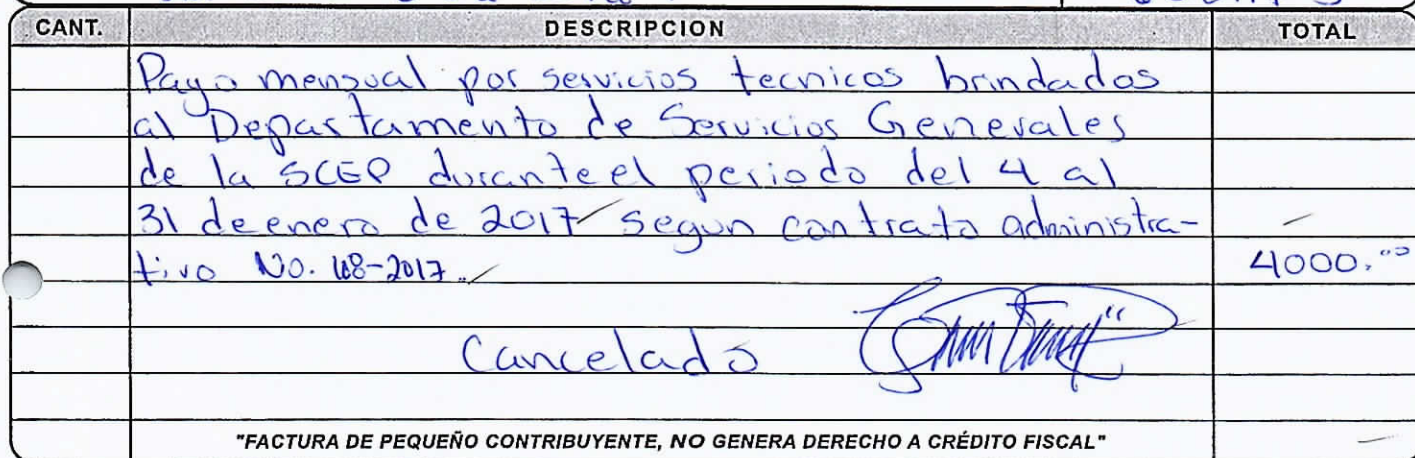 CANT. DESCRIPCION TOTAL
Pago mensual por servicios tecnicos brindados
al Departamento de Servicios Generales
de la SCEP durante el periodo del 4 al
31 de enero de 2017 segun contrato administra-
tivo No. 168-2017. 4000.00
Cancelado
"FACTURA DE PEQUEÑO CONTRIBUYENTE, NO GENERA DERECHO A CRÉDITO FISCAL"